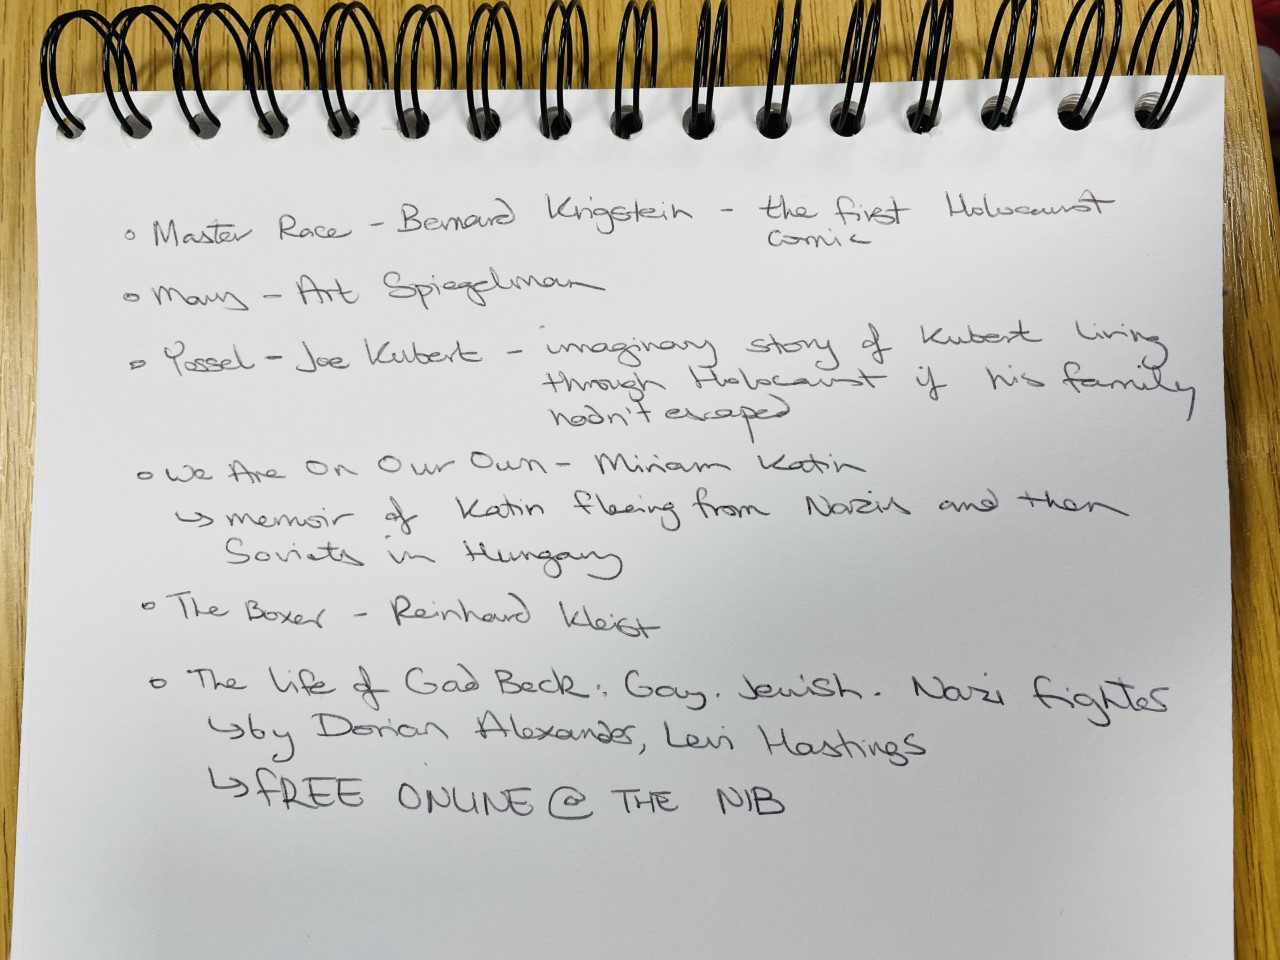 Master Race - Bernard Krigstein - the first Holocaust
comic
Maus - Art Spiegelman
Yossel - Joe Kubert - imaginary story of Kubert living
through Holocaust if his family
hadn't escaped
We Are On Our Own - Miriam Katin
↳ memoir of Katin fleeing from Nazis and then
Soviets in Hungary
The Boxer - Reinhard Kleist
The Life of Gad Beck: Gay. Jewish. Nazi fighter
↳ by Dorian Alexander, Levi Hastings
↳ FREE ONLINE @ THE NIB